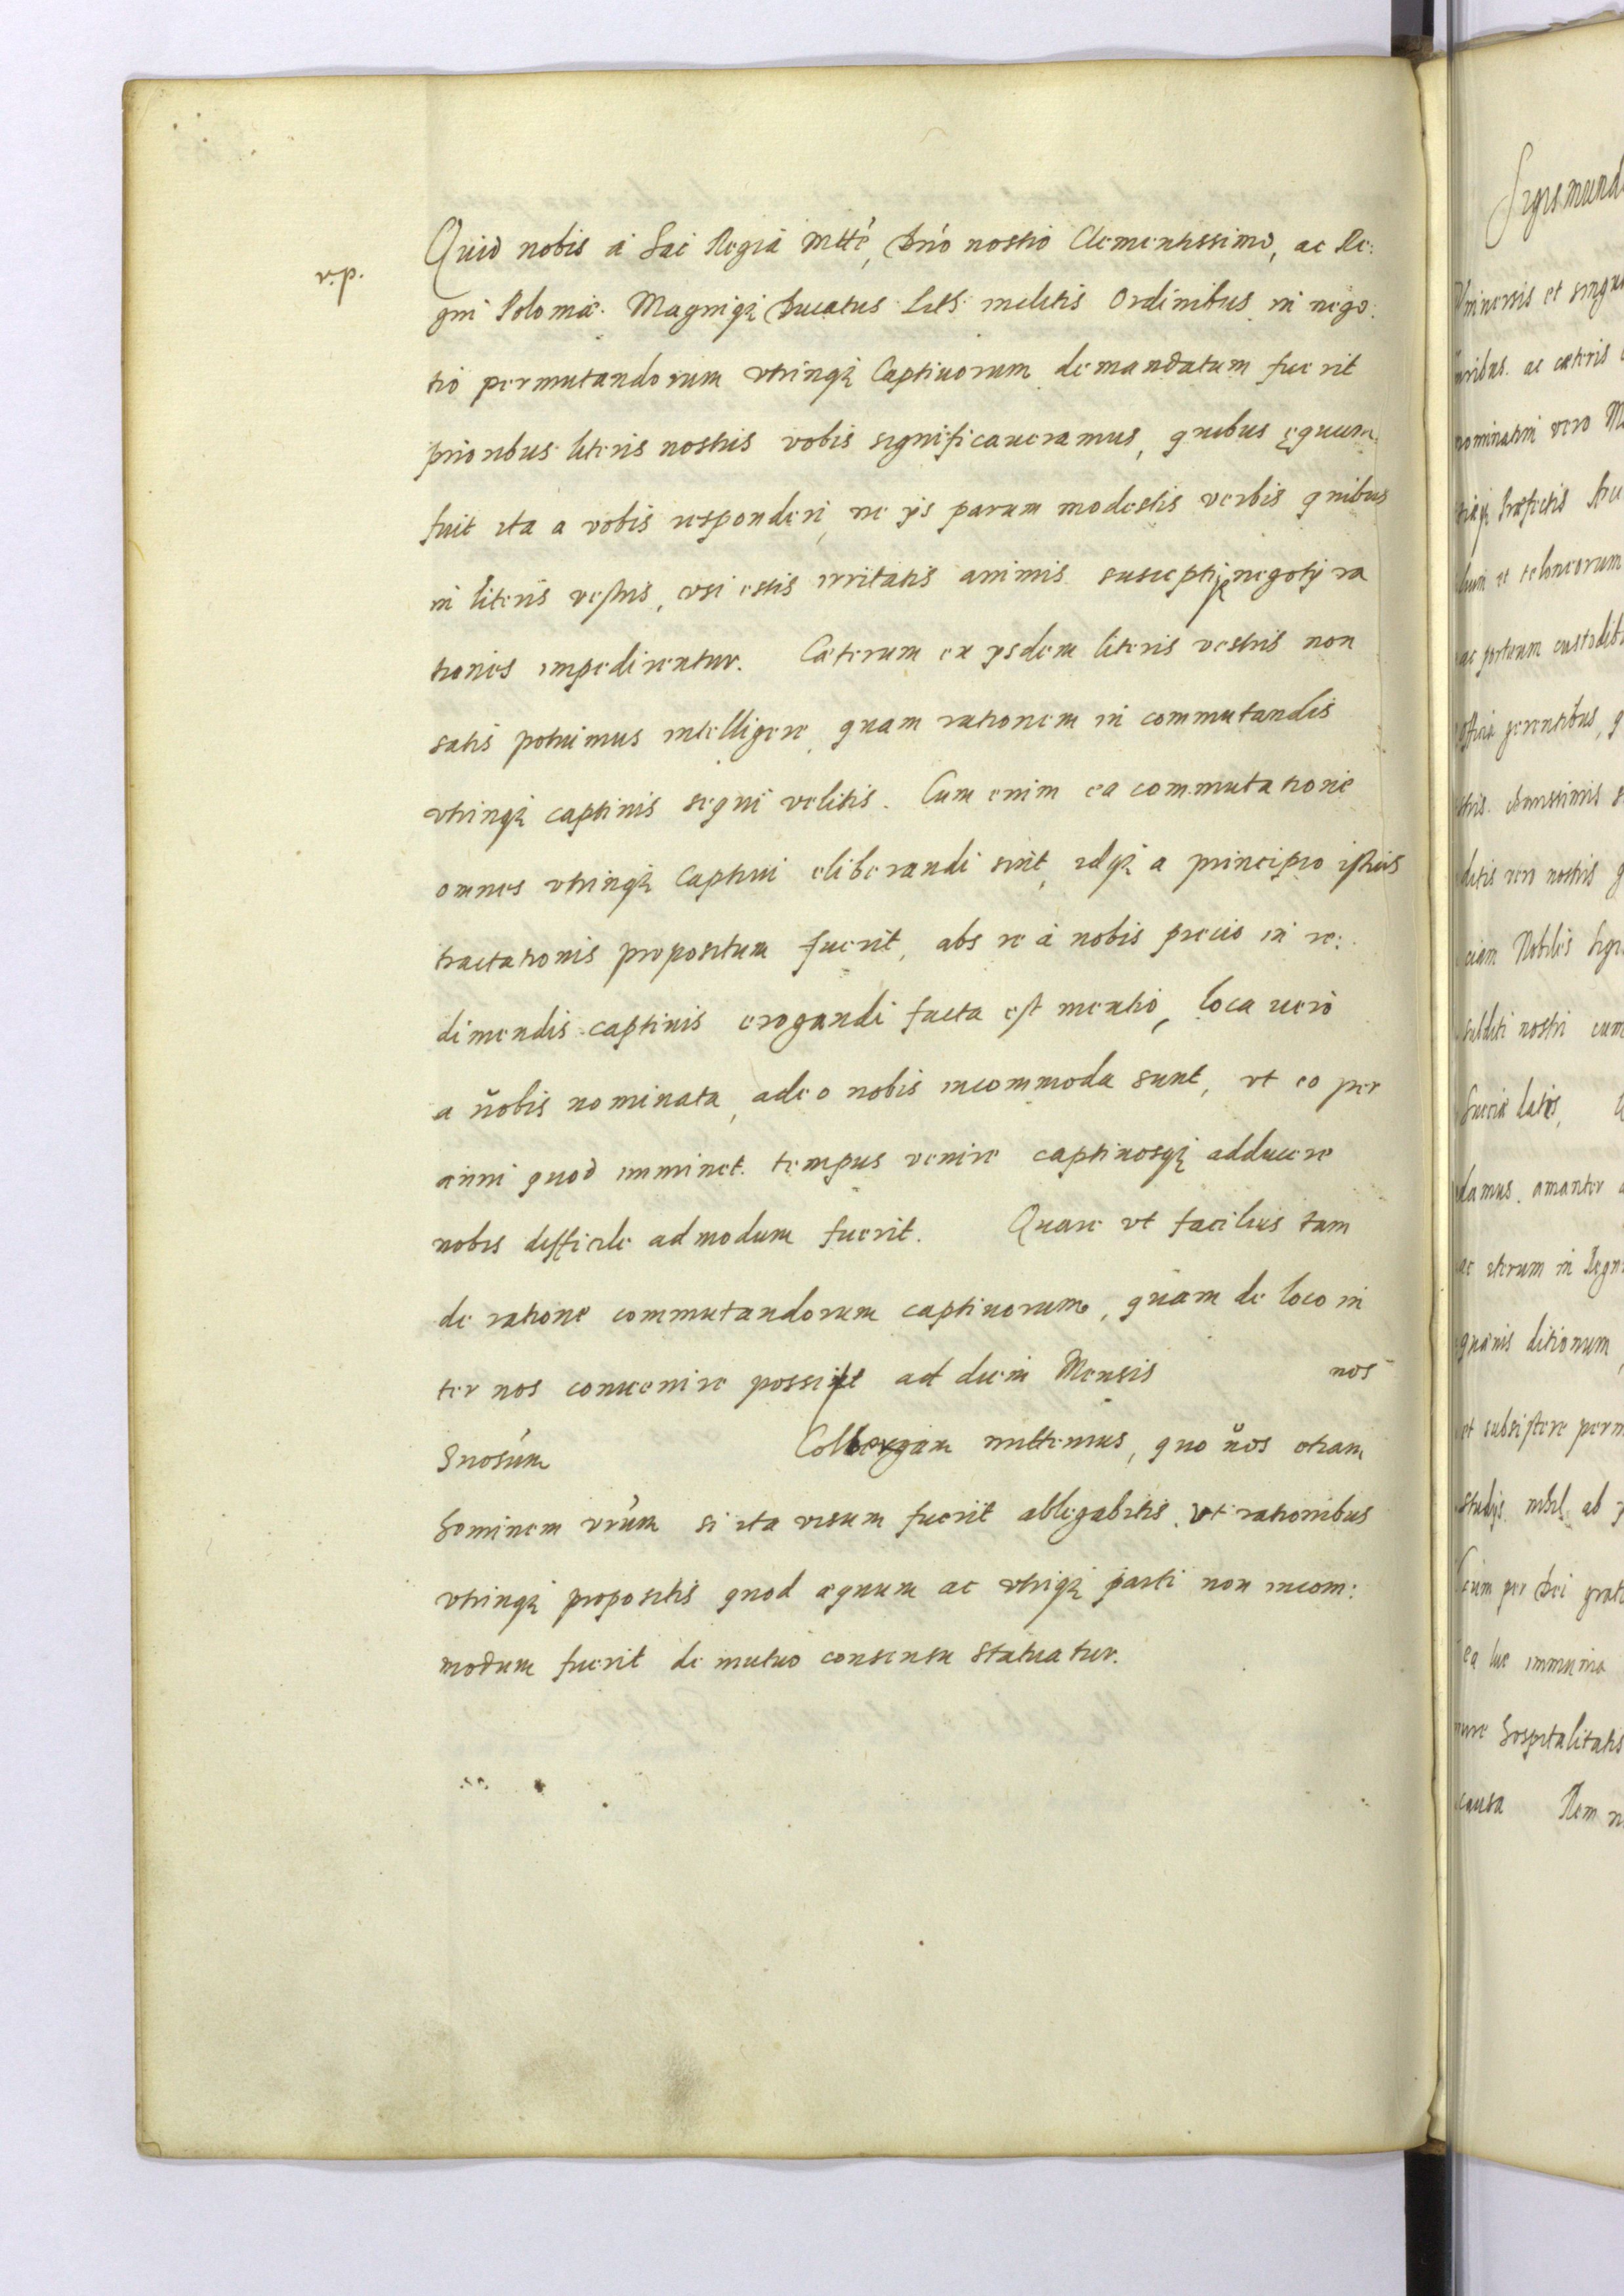 v.p.
Quid nobis à Sac Regia Mtte, Dno nostro Clementissimo, ac Re:
gni Poloniæ. Magniq₃ Ducatus Lith: inclitis Ordinibus in nego:
tio permutandorum vtrinq₃ Captiuorum demandatum fuerit
prioribus literis nostris vobis significaueramus, quibus ęquum
fuit ita a vobis responderi, ne ijs parum modestis verbis quibus
in literis vestris, vsi estis irritatis animis suscepti negotij ra
tiones impedirentur. Cæterum ex ijsdem literis vestris non
satis potuimus intelligere, quam rationem in commutandis
vtrinq₃ captiuis sequi velitis. Cum enim ea commutatione
omnes vtrinq₃ Captiui eliberandi sint, idq₃ a principio istius
tractationis propositum fuerit, abs re à nobis precio in re:
dimendis captiuis erogandi facta est mentio, loca uerò
a ũobis nominata, adeo nobis incommoda sunt, vt eo per
anni quod imminet tempus venire captiuosq₃ adducere
nobis difficile admodum fuerit. Quare vt facilius tam
de ratione commutandorum captiuorum, quam de loco in
ter nos conuenire possit ad diem Mensis nos
Colbergam mittemus, quo ũos etiam
hominem vrũm si ita visum fuerit ablegabitis. vt rationibus
vtrinq₃ propositis quod æquum ac vtriq₃ parti non incom:
modum fuerit de mutuo consensu statuatur.
Sigismund
Vniuersis et singu
ac cæteris
nominatim vero M
Præfectis
et teloneorum
ac portuum custodib
gerentibus, q
charissimis
nostris
Nobilis
subditi nostri cum
Sueciæ
damus. amanter
ac vterum in Regn
ditionum,
et subsistere perm
studijs. nihil ab
cum per Dei grat
ea lue immunia
iure hospitalitatis
causa Rem